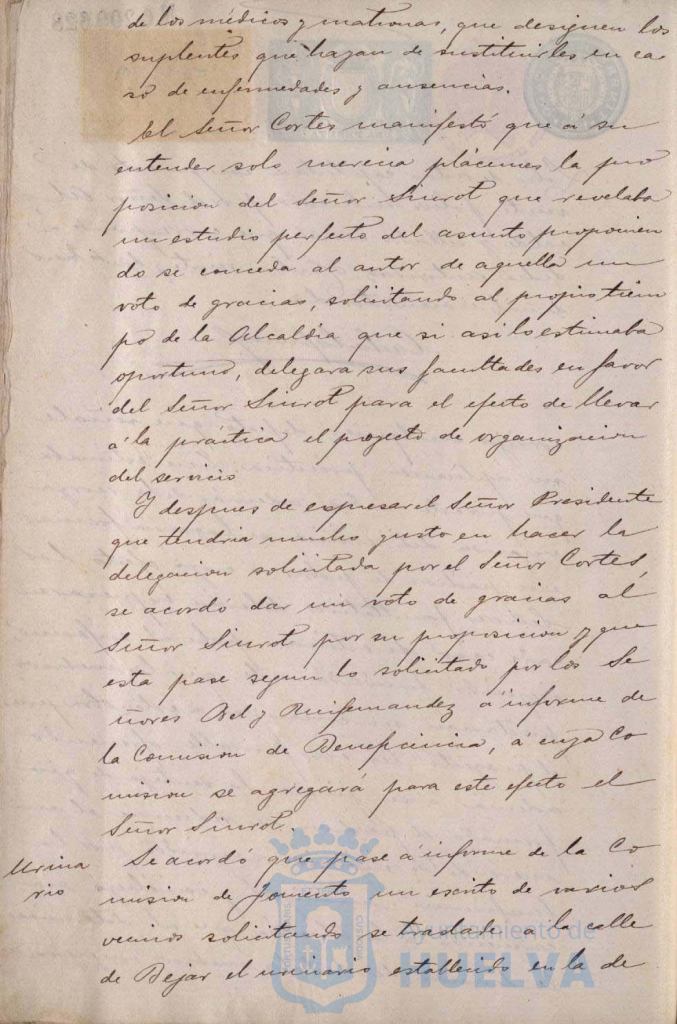 de los médicos y matronas, que designen los
suplentes que hayan de sustituirles en ca
so de enfermedades y ausencias.
El Señor Cortes manifestó que á su
entender solo merecia plácemes la pro
posicion del Señor Siurot que revelaba
un estudio perfecto del asunto proponien
do se conceda al autor de aquella un
voto de gracias, solicitando al propio tiem
po de la Alcaldia que si asi lo estimaba
oportuno, delegara sus facultades en favor
del Señor Siurot para el efecto de llevar
á la práctica el proyecto de organizacion
del servicio
Y despues de expresar el Señor Presidente
que tendria mucho gusto en hacer la
delegacion solicitada por el Señor Cortes,
se acordó dar un voto de gracias al
Señor Siurot por su proposicion y que
esta pase segun lo solicitado por los Se
ñores Bel y Ruifernandez á informe de
la Comision de Beneficincia, á cuya Co
mision se agregará para este efecto el
Señor Siurot.
Urina
rio
Se acordó que pase á informe de la Co
mision de Fomento un escrito de varios
vecinos solicitando se traslade á la calle
de Bejar el urinario establendo en la de
Ayuntamiento de
HUELVA